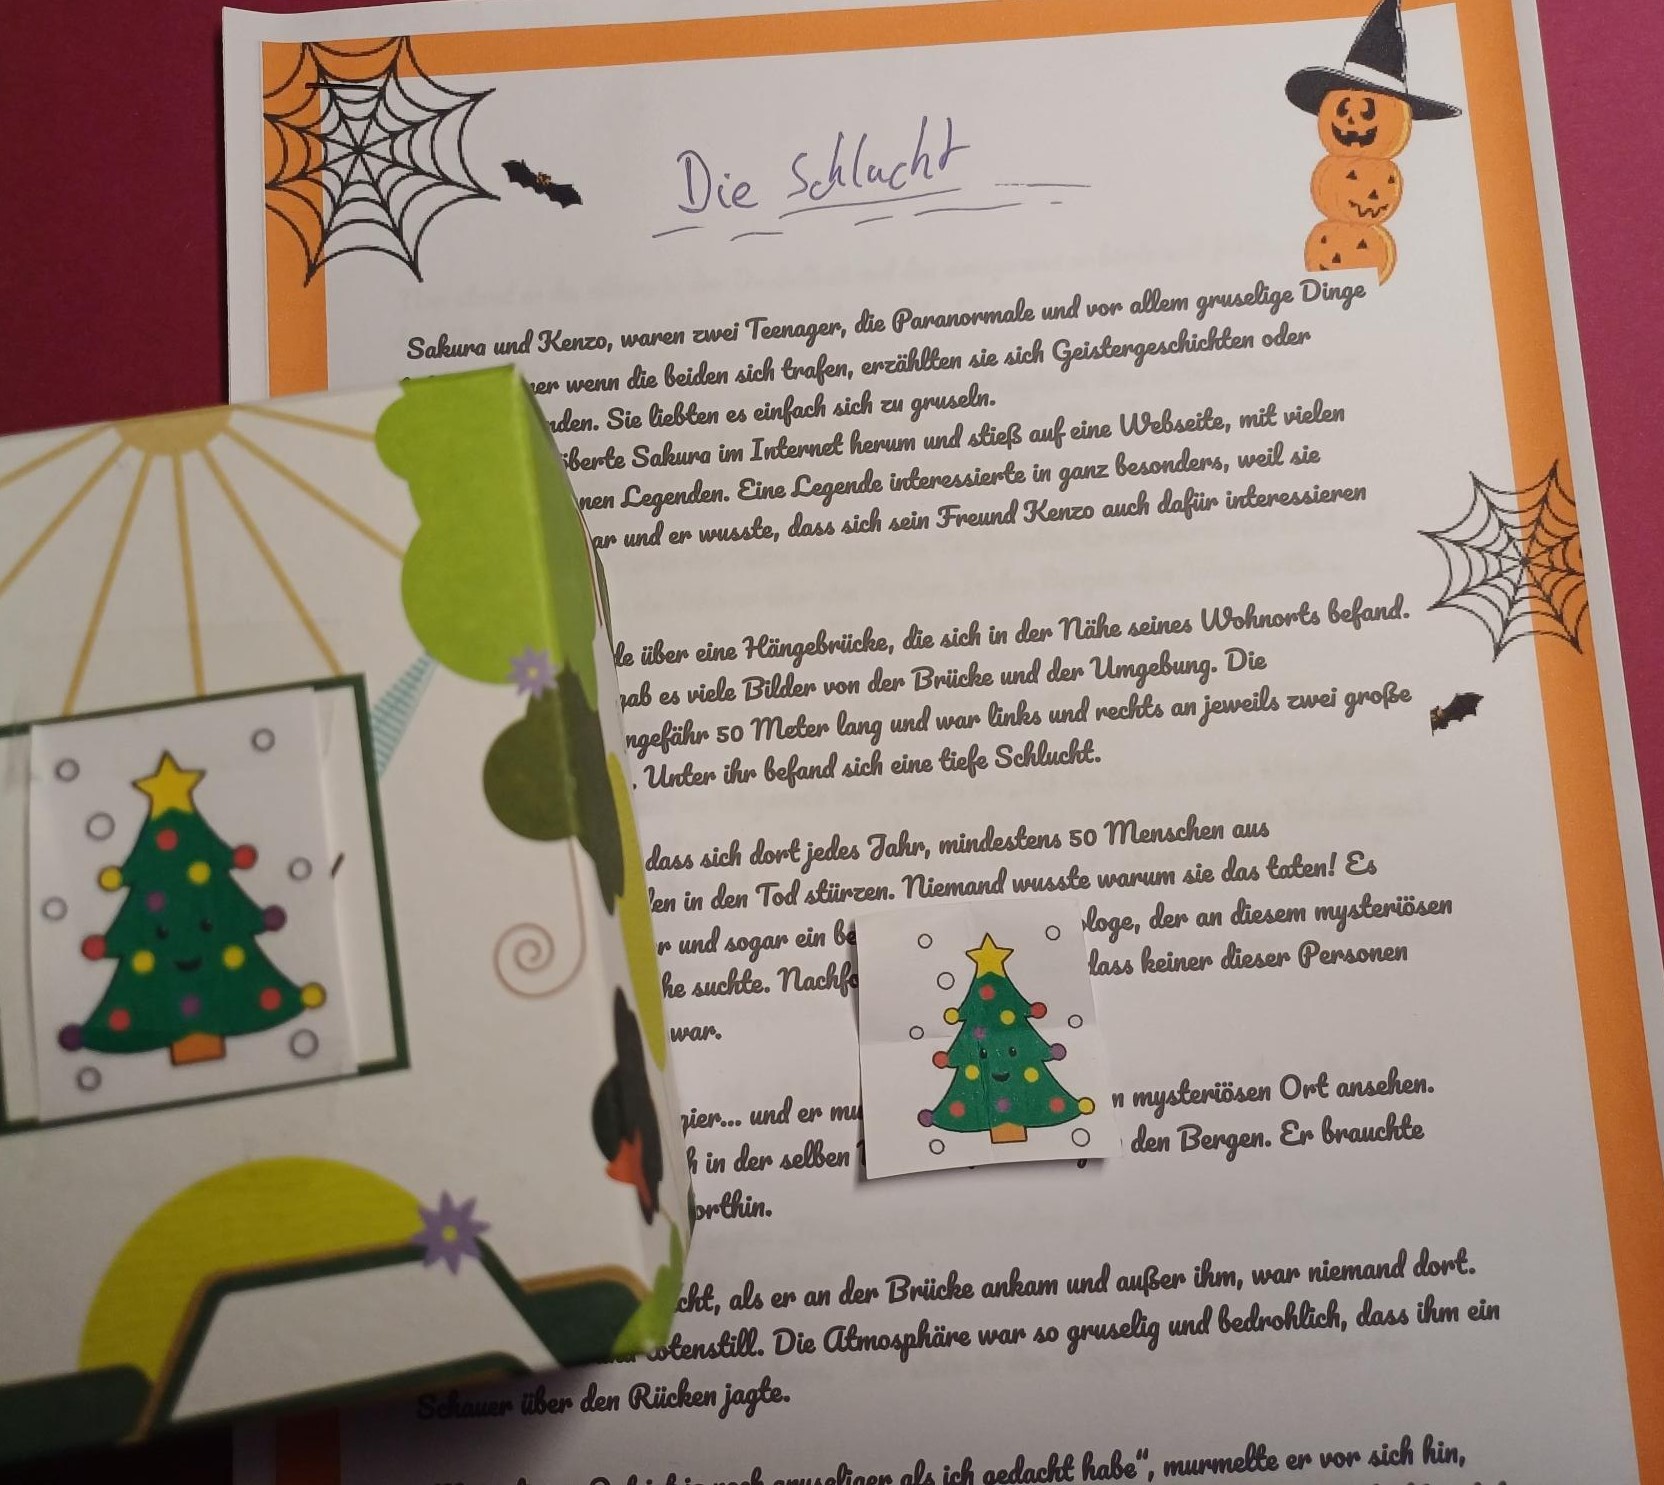 Die Schlucht
Sakura und Kenzo, waren zwei Teenager, die Paranormale und vor allem gruselige Dinge
wenn die beiden sich trafen, erzählten sie sich Geistergeschichten oder
Sie liebten es einfach sich zu gruseln.
Sakura im Internet herum und stieß auf eine Webseite, mit vielen
Legenden. Eine Legende interessierte in ganz besonders, weil sie
und er wusste, dass sich sein Freund Kenzo auch dafür interessieren
über eine Hängebrücke, die sich in der Nähe seines Wohnorts befand.
gab es viele Bilder von der Brücke und der Umgebung. Die
50 Meter lang und war links und rechts an jeweils zwei große
. Unter ihr befand sich eine tiefe Schlucht.
dass sich dort jedes Jahr, mindestens 50 Menschen aus
in den Tod stürzen. Niemand wusste warum sie das taten! Es
und sogar ein loge, der an diesem mysteriösen
suchte. dass keiner dieser Personen
war.
und er mysteriösen Ort ansehen.
in der selben den Bergen. Er brauchte
orthin.
als er an der Brücke ankam und außer ihm, war niemand dort.
totenstill. Die Atmosphäre war so gruselig und bedrohlich, dass ihm ein
Schauer über den Rücken jagte.
noch gruseliger als ich gedacht habe“, murmelte er vor sich hin,